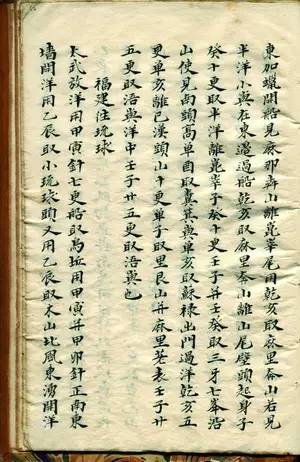 東加蠟開船見麻那犇山離崑峯尾用乾亥取麻里夲山若見
半洋小嶼在東邉過船乾亥取麻里夲山離山尾壁頭起身子
癸十更取半洋離崑峯子癸十更壬子并壬癸取三牙七峯沿
山使見南頭高單酉取箕嶼單亥取蘇祿出門過洋乾亥五
更單亥離已漢頭山十更單子取里艮山并麻里荖表壬子廿
五更取浯嶼洋中壬子廿五更取浯嶼也
福建往琉球
太武放洋用甲寅針七更船取烏坵用甲寅并甲卯針正南東
墙開洋用乙辰取小琉球頭又用乙辰取木山北風東湧開洋